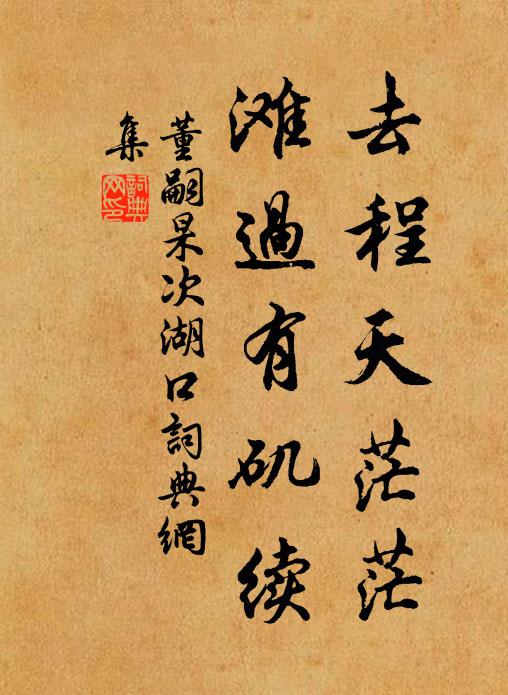 去程天茫茫
滩過有矶续
董嗣杲次湖口詞典網
集
詞典
网印